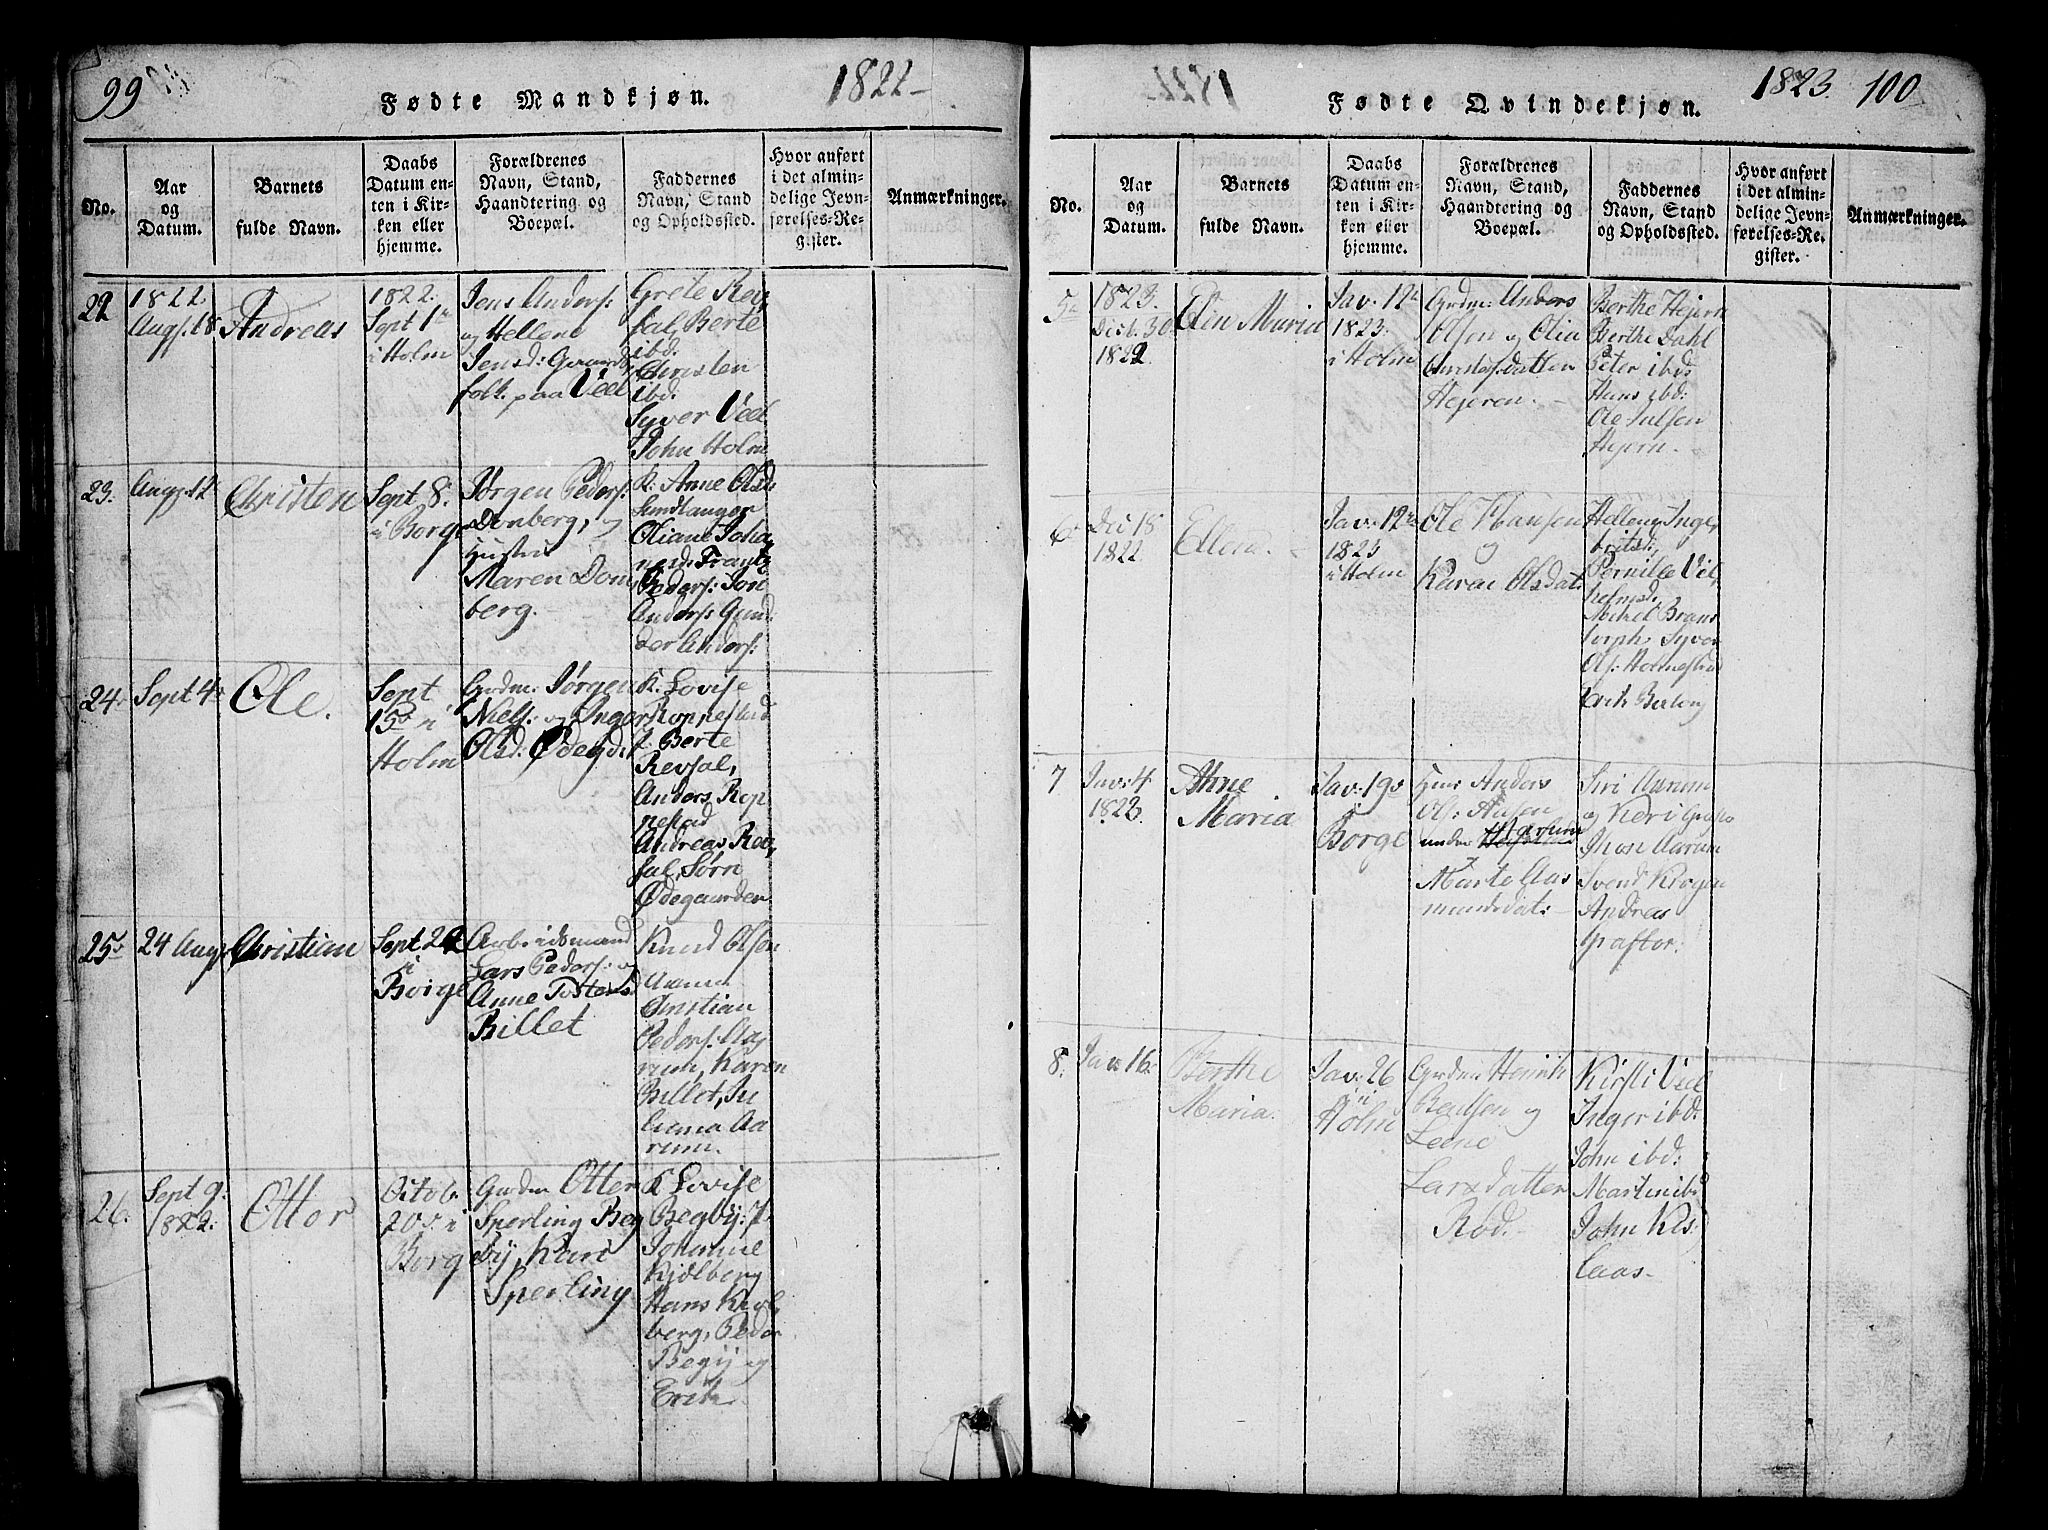 99
Fødte Mandkjøn.
1822
No.
Aar
og
Datum.
Barnets
fulde Navn.
Daabs
Datum en-
ten i Kir-
ken eller
hjemme.
Forældrenes
Navn, Stand,
Haandtering og
Boepæl.
Faddernes
Navn, Stand
og Opholdssted.
Hvor anført
i det almin-
delige Jevn-
førelses-Re-
gister.
Anmærkninger.
22
1822
Augs. 18
Andreas
1822.
Sept 1te
i Holm
Jens Anders:
og Hellene
Jensd: Gaard
folk paa Veel
Grete Rev
sal, Berte
ibd.
Christen
ibd.
Syver Veel
John Holm
23.
Aug. 12
Christen
Sept 8.
i Borge
Jørgen Peders:
Donberg, og
Hustru
Maren Don
berg.
K. Anne Olsd:
Sundlangen
Oliane Joha
nnesd. Frantz
Peders: Jon
Anders: Gun
der Anders:
24.
Sept 4
Ole.
Sept
15 i
Holm
Grdm: Jørgen
Niels: og Inger
Olsd: Ødegd:
K. Lovise
Roppestad
J. Berte
Revsal,
Anders Rop
pestad
Andreas Rev
sal, Sørn
Ødegaarden
25
24 Aug
Christian
Sept 22
i
Borge
Arbeidsmand
Lars Peders: og
Anne Tostensd
Billet
Knud Olsen
Aarum
Christian
Peders: Aa
rum, Karen
Billet, Ju
liana Aa
rum.
26.
Sept 9.
1822.
Otter
Octob.
20 i
Borge
Grdm Otter
Sperling Beg
by, Kari
Sperling
K Lovise
Begby: J.
Johanne
Kjølberg
Hans Kjøl
berg, Peder
Begby og
Erik
1823. 100
Fødte Qvindekjøn.
No.
Aar
og
Datum.
Barnets
fulde Navn.
Daabs
Datum en-
ten i Kir-
ken eller
hjemme.
Forældrenes
Navn, Stand,
Haandtering og
Boepæl.
Faddernes
Navn, Stand
og Opholdssted.
Hvor anført
i det almin-
delige Jevn-
førelses-Re-
gister.
Anmærkninger.
5
1823.
Decb. 30
1822
Elin Maria
Jav. 12
1823.
i Holm
Grdm: Anders
Olsen og Olia
Christophsdatter
Hejeren.
Berthe Hejern
Berthe Dahl
Peter ibd:
Hans ibd:
Ole Julsen
Hejern.
6
Dec 18
1822
Ellen.
Jav. 12
1823
i Holm
Ole Hansen
og
Karen Olsdat:
Helleng Inge
britsd,
Pernille Vil
helmsd.
Mikel Brans
torph. Syver
Ols: Holmestrand
Erik Berby
7
Jav. 4
1823.
Anne
Maria
Jav. 19
i
Borge
Huus Anders
Ols: Aasen
under Aarum
Marte Aas
mundsdat:
Siri Aarum
og Kari
Thon Aarum
Svend Krogen
Andreas
8.
Jav 16.
Berthe
Maria.
Jav. 26
i
Holm
Grdm Henrik
og
Leene
Larsdatter
Rød.
Kirsti Veel
Inger ibd:
John ibd:
Martin ibd
John Kis
laas.